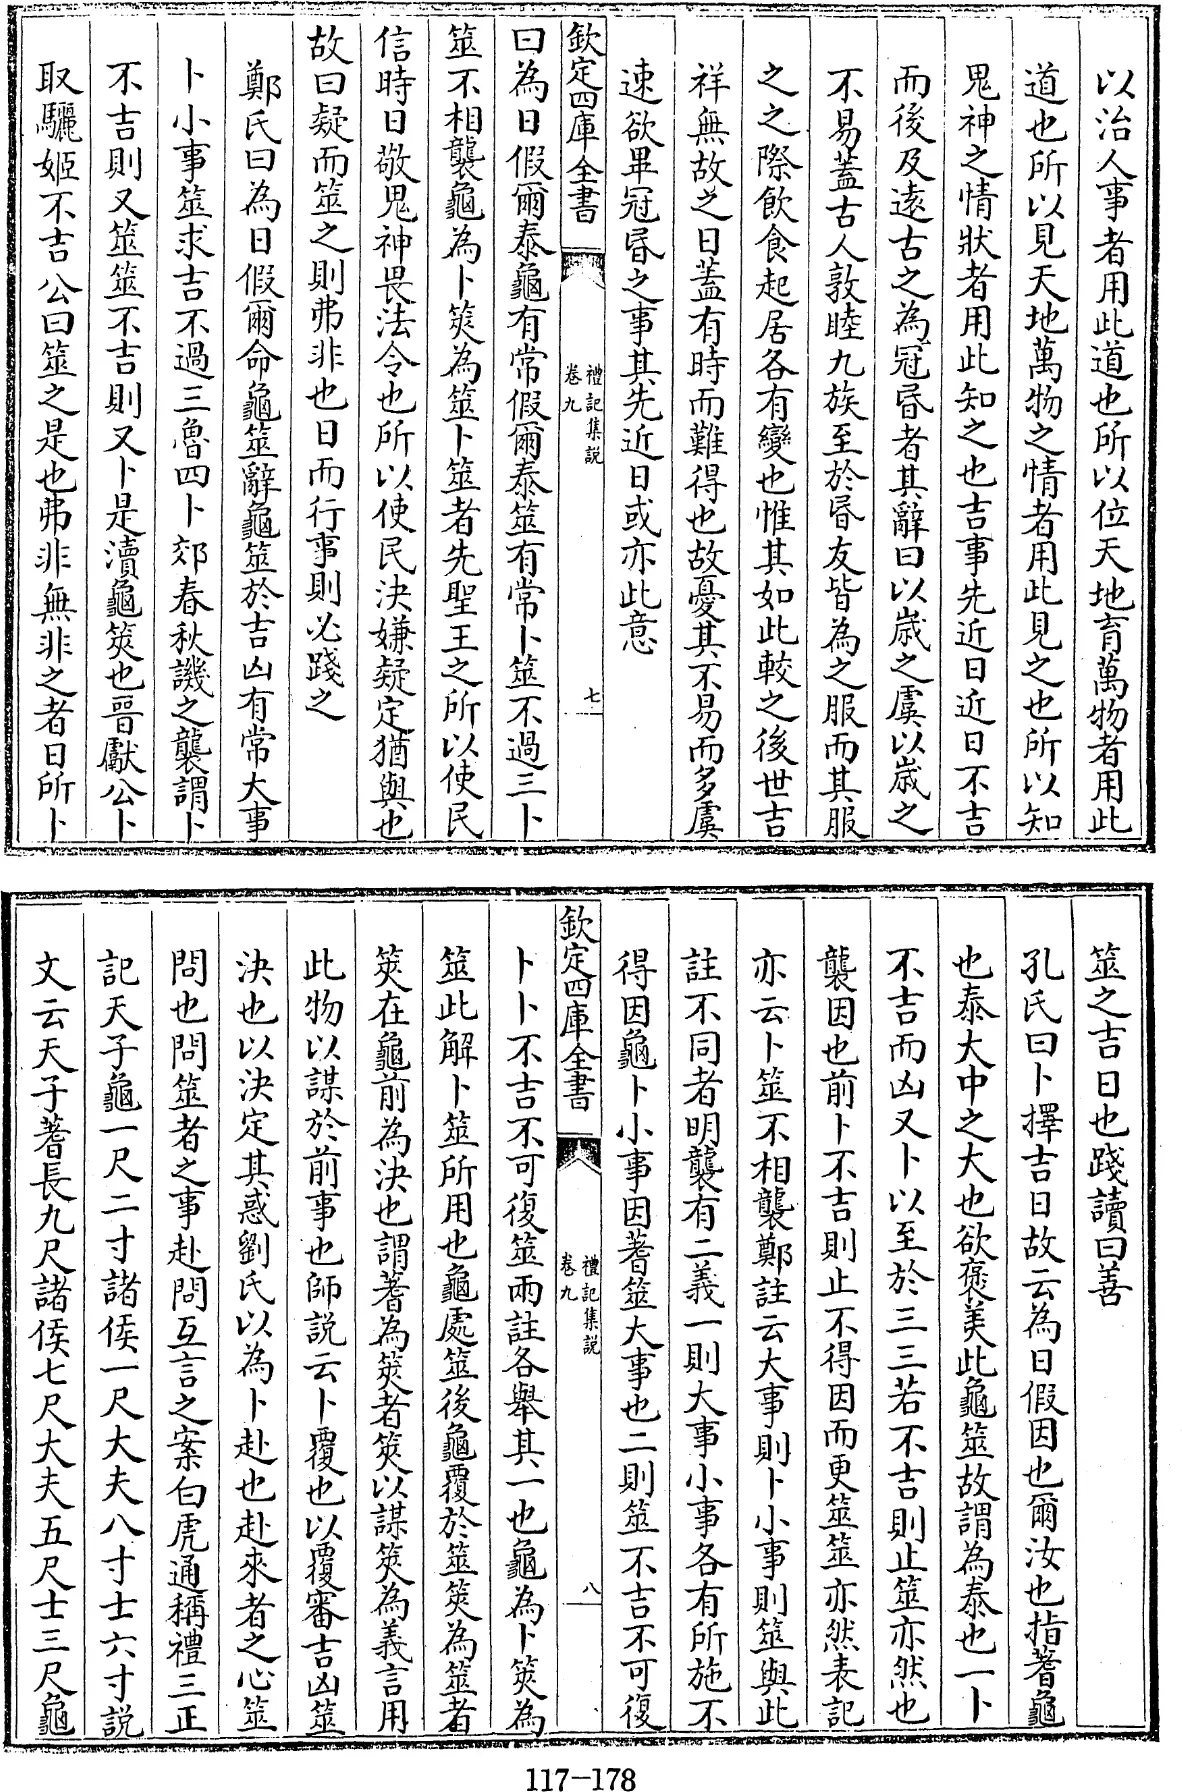 以治人事者用此道也所以位天地育萬物者用此
道也所以見天地萬物之情者用此見之也所以知
鬼神之情狀者用此知之也吉事先近日近日不吉
而後及遠古之為冠昏者其辭曰以嵗之虞以嵗之
不易蓋古人敦睦九族至於昏友皆為之服而其服
之之際飲食起居各有變也惟其如此較之後世吉
祥無故之日蓋有時而難得也故憂其不易而多虞
速欲畢冠昏之事其先近日或亦此意
欽定四庫全書
禮記集説
卷九
七
曰為日假爾泰龜有常假爾泰筮有常卜筮不過三卜
筮不相襲龜為卜筴為筮卜筮者先聖王之所以使民
信時日敬鬼神畏法令也所以使民決嫌疑定猶與也
故曰疑而筮之則弗非也日而行事則必踐之
鄭氏曰為日假爾命龜筮辭龜筮於吉凶有常大事
卜小事筮求吉不過三魯四卜郊春秋譏之襲謂卜
不吉則又筮筮不吉則又卜是瀆龜筴也晉獻公卜
取驪姬不吉公曰筮之是也弗非無非之者日所卜
筮之吉日也踐讀曰善
孔氏曰卜擇吉日故云為日假因也爾汝也指蓍龜
也泰大中之大也欲褒美此龜筮故謂為泰也一卜
不吉而凶又卜以至於三三若不吉則止筮亦然也
襲因也前卜不吉則止不得因而更筮筮亦然表記
亦云卜筮不相襲鄭註云大事則卜小事則筮與此
註不同者明襲有二義一則大事小事各有所施不
得因龜卜小事因蓍筮大事也二則筮不吉不可復
欽定四庫全書
禮記集説
卷九
八
卜卜不吉不可復筮兩註各舉其一也龜為卜筴為
筮此解卜筮所用也龜處筮後龜覆於筮筴為筮者
筴在龜前為決也謂蓍為筴者筴以謀筴為義言用
此物以謀於前事也師説云卜覆也以覆審吉凶筮
決也以決定其惑劉氏以為卜赴也赴來者之心筮
問也問筮者之事赴問互言之案白虎通稱禮三正
記天子龜一尺二寸諸侯一尺大夫八寸士六寸説
文云天子蓍長九尺諸侯七尺大夫五尺士三尺龜
117-178